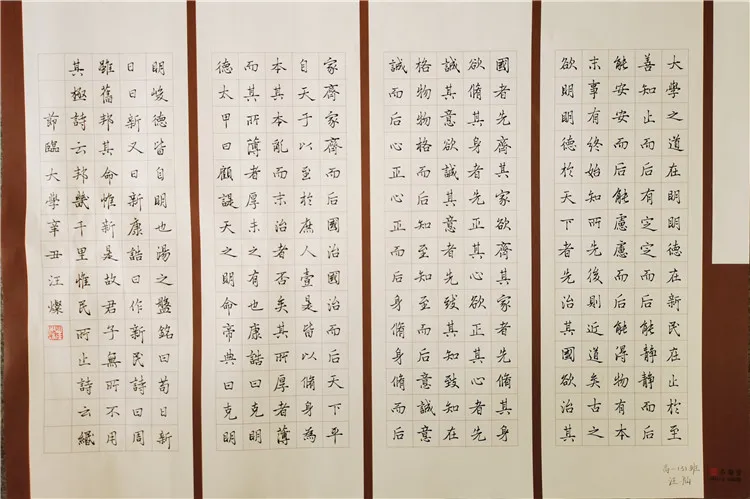 大學之道在明明德在新民在止於至
善知止而后有定定而后能靜靜而后
能安安而后能慮慮而后能得物有本
末事有終始知所先後則近道矣古之
欲明明德於天下者先治其國欲治其
國者先齊其家欲齊其家者先脩其身
欲脩其身者先正其心欲正其心者先
誠其意欲誠其意者先致其知致知在
格物物格而后知至知至而后意誠意
誠而后心正心正而后身脩身脩而后
家齊家齊而后國治國治而后天下平
自天子以至於庶人壹是皆以脩身為
本其本亂而末治者否矣其所厚者薄
而其所薄者厚未之有也康誥曰克明
德太甲曰顧諟天之明命帝典曰克明
明峻德皆自明也湯之盤銘曰苟日新
日日新又日新康誥曰作新民詩曰周
雖舊邦其命惟新是故君子無所不用
其極詩云邦畿千里惟民所止詩云緡
節臨大學辛丑汪燦